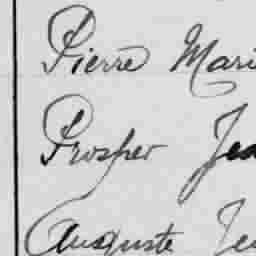 Pierre Mari
Prosper Jea
Auguste Je